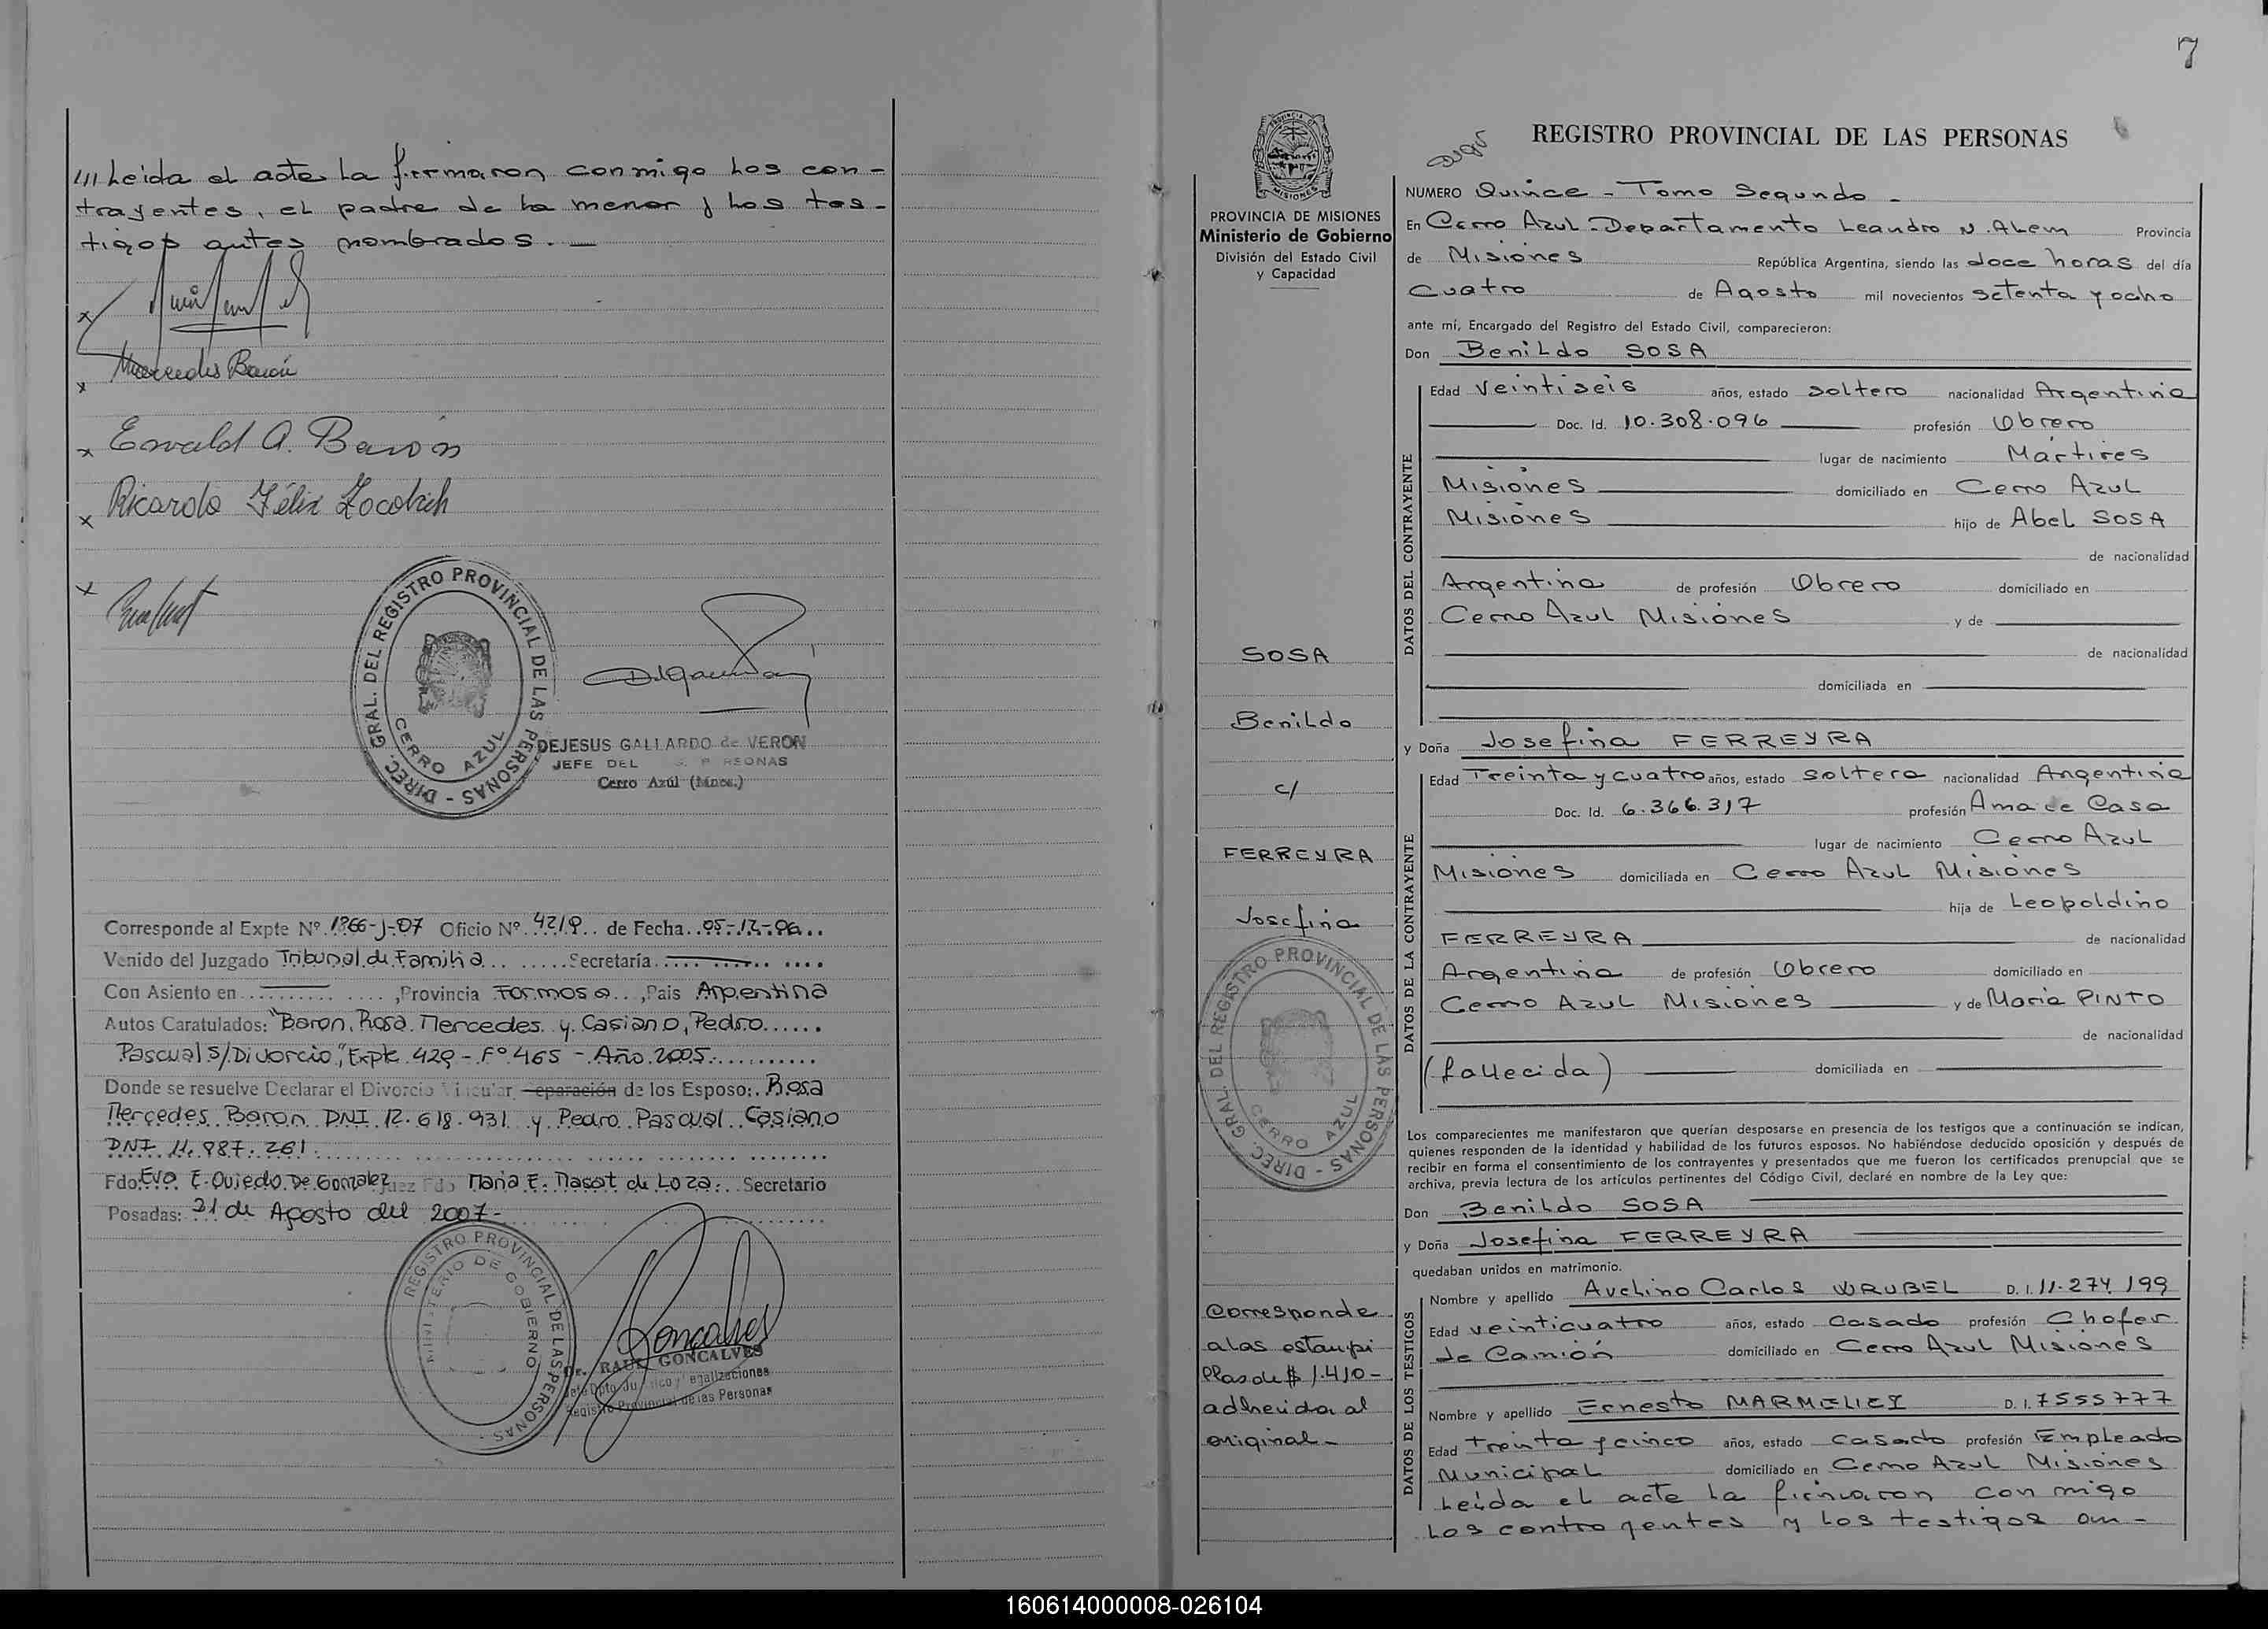 /// Leida el acta la firmaron conmigo los con-
trayentes, el padre de la menor y los tes-
tigos antes nombrados. —
x
x Mercedes Barón
x Esvald A. Barón
x Ricardo Félix
x
DIREC. GRAL. DEL REGISTRO PROVINCIAL DE LAS PERSONAS -
CERRO AZUL
DEJESUS GALLARDO de VERON
JEFE DEL
Cerro Azúl (Mnes.)
Corresponde al Expte Nº 1866-J-07 Oficio Nº 4219 de Fecha 05-12-06
Venido del Juzgado Tribunal de Familia Secretaría
Con Asiento en , Provincia Formosa , Pais Argentina
Autos Caratulados: "Baron, Rosa Mercedes y Casiano, Pedro
Pascual s/Divorcio", Expte 429 - Fº 465 - Año 2005
Donde se resuelve Declarar el Divorcio Vincular Separación de los Esposo: Rosa
Mercedes Baron DNI 12.618.931 y Pedro Pascual Casiano
DNI 11.887.261
Fdo. Eva E. Oviedo De Gonzalez Juez Fdo Maria E. Nasat de Loza Secretario
Posadas: 31 de Agosto del 2007-
REGISTRO PROVINCIAL DE LAS PERSONAS -
MINISTERIO DE GOBIERNO
Goncalves
Dr. RAUL GONCALVES
Registro Provincial de las Personas
7
REGISTRO PROVINCIAL DE LAS PERSONAS
PROVINCIA DE MISIONES
Ministerio de Gobierno
División del Estado Civil
y Capacidad
NUMERO Quince - Tomo Segundo -
En Cerro Azul - Departamento Leandro N. Alem Provincia
de Misiones República Argentina, siendo las doce horas del día
Cuatro de Agosto mil novecientos setenta y ocho
ante mí, Encargado del Registro del Estado Civil, comparecieron:
Don Benildo SOSA
DATOS DEL CONTRAYENTE
Edad Veintiseis años, estado soltero nacionalidad Argentina
Doc. Id. 10.308.096 profesión Obrero
lugar de nacimiento Mártires
Misiones domiciliado en Cerro Azul
Misiones hijo de Abel SOSA
de nacionalidad
Argentina de profesión Obrero domiciliado en
Cerro Azul Misiones y de
de nacionalidad
domiciliada en
SOSA
Benildo
c/
FERREYRA
Josefina
DIREC. GRAL. DEL REGISTRO PROVINCIAL DE LAS PERSONAS -
CERRO AZUL
y Doña Josefina FERREYRA
DATOS DE LA CONTRAYENTE
Edad Treinta y cuatro años, estado soltera nacionalidad Argentina
Doc. Id. 6.366.317 profesión Ama de Casa
lugar de nacimiento Cerro Azul
Misiones domiciliada en Cerro Azul Misiones
hija de Leopoldino
FERREYRA de nacionalidad
Argentina de profesión Obrero domiciliado en
Cerro Azul Misiones y de Maria PINTO
de nacionalidad
(fallecida) domiciliada en
Los comparecientes me manifestaron que querían desposarse en presencia de los testigos que a continuación se indican,
quienes responden de la identidad y habilidad de los futuros esposos. No habiéndose deducido oposición y después de
recibir en forma el consentimiento de los contrayentes y presentados que me fueron los certificados prenupcial que se
archiva, previa lectura de los artículos pertinentes del Código Civil, declaré en nombre de la Ley que:
Don Benildo SOSA
y Doña Josefina FERREYRA
quedaban unidos en matrimonio.
DATOS DE LOS TESTIGOS
Nombre y apellido Avelino Carlos WRUBEL D. I. 11.274.199
Edad veinticuatro años, estado Casado profesión Chofer
de Camión domiciliado en Cerro Azul Misiones
Nombre y apellido Ernesto D. I. 7555777
Edad treinta y cinco años, estado casado profesión Empleado
Municipal domiciliado en Cerro Azul Misiones
Leida el acta la firmaron con migo
los contrayentes y los testigos an-
Corresponde
a las estampi
llas de $ 1.410-
adherida al
original-
160614000008-026104